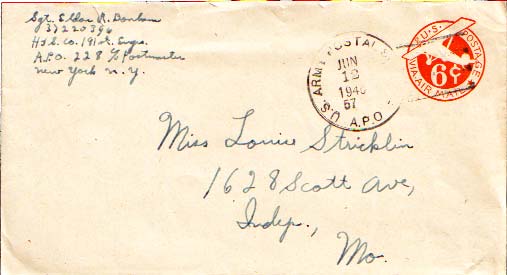 Sgt. Eldon R. Donham
37220396
H & S. Co. 191st Engs.
A.P.O. 228 % Postmaster
New York N. Y.
U.S. ARMY POSTAL S
JUN
12
1945
67
A.P.O
U.S. POSTAGE
6¢
VIA AIR MAIL
Miss Louise Stricklin
1628 Scott Ave,
Indep.,
Mo.